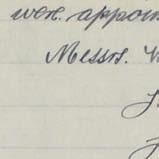 were appoin
Messrs.